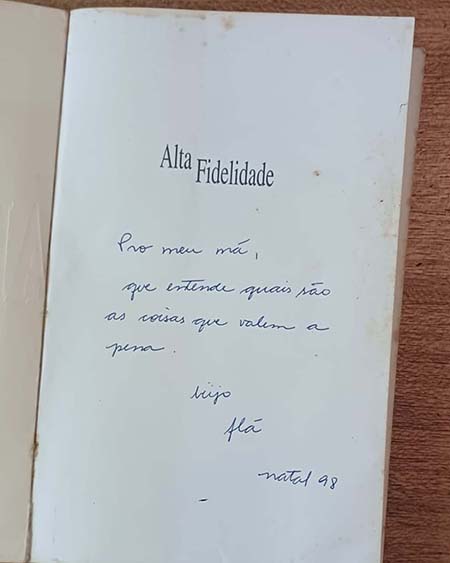 Alta
Fidelidade
Pro meu má,
que entende quais são
as coisas que valem a
pena.
beijo
Flá
natal 98